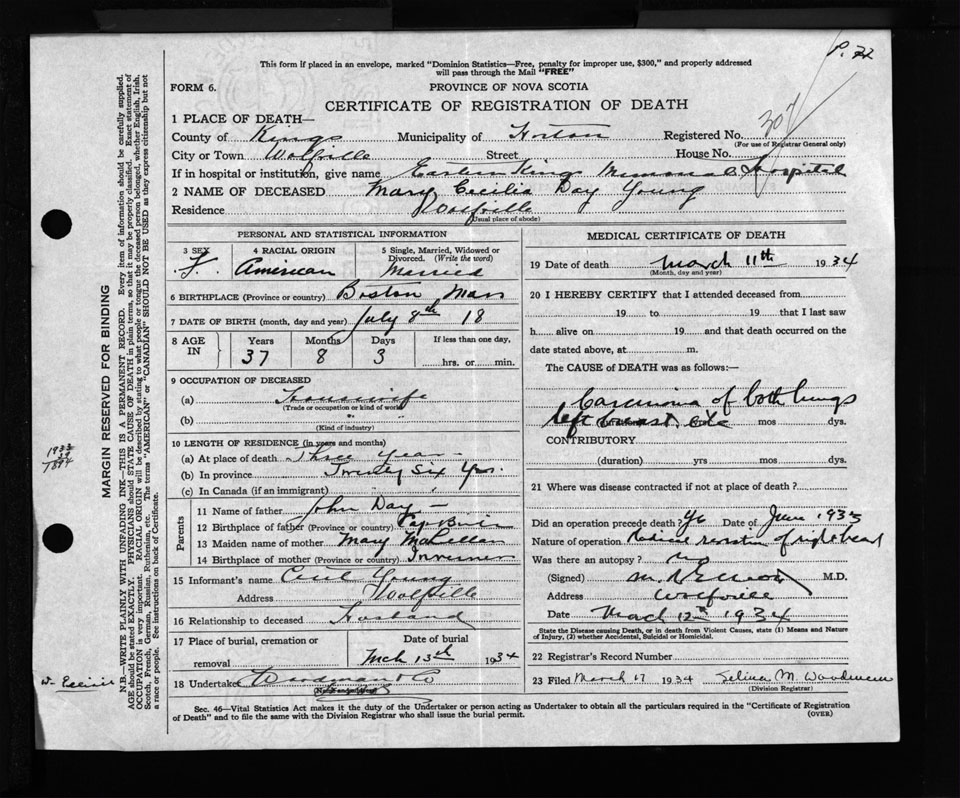 P. 22
This form if placed in an envelope, marked "Dominion Statistics—Free, penalty for improper use, $300," and properly addressed
will pass through the Mail "FREE"
FORM 6.
PROVINCE OF NOVA SCOTIA
CERTIFICATE OF REGISTRATION OF DEATH
1 PLACE OF DEATH—
County of Kings Municipality of Horton Registered No. 307
(For use of Registrar General only)
City or Town Wolfville Street House No.
If in hospital or institution, give name Eastern Kings Memorial Hospital
2 NAME OF DECEASED Mary Cecilia Day Young
Residence Wolfville
(Usual place of abode)
PERSONAL AND STATISTICAL INFORMATION
3 SEX 4 RACIAL ORIGIN 5 Single, Married, Widowed or Divorced. (Write the word)
F. American Married
6 BIRTHPLACE (Province or country) Boston Mass
7 DATE OF BIRTH (month, day and year) July 8th 18
8 AGE IN Years Months Days If less than one day,
37 8 3 hrs. or min.
9 OCCUPATION OF DECEASED
(a) Housewife
(Trade or occupation or kind of work)
(b)
(Kind of industry)
10 LENGTH OF RESIDENCE (in years and months)
(a) At place of death Three Years
(b) In province Twenty Six Yrs.
(c) In Canada (if an immigrant)
Parents
11 Name of father John Day
12 Birthplace of father (Province or country)
13 Maiden name of mother Mary McLellan
14 Birthplace of mother (Province or country) Inverness
15 Informant's name Cecil Young
Address Wolfville
16 Relationship to deceased Husband
17 Place of burial, cremation or removal Date of burial
Mch 13th 1934
18 Undertaker Woodman & Co
MEDICAL CERTIFICATE OF DEATH
19 Date of death March 11th 1934
(Month, day and year)
20 I HEREBY CERTIFY that I attended deceased from
19 to 19 that I last saw
h alive on 19 and that death occurred on
date stated above, at m.
The CAUSE of DEATH was as follows:—
Carcinoma of both lungs
left breast, etc
(duration) yrs mos dys.
CONTRIBUTORY
(duration) yrs mos dys.
21 Where was disease contracted if not at place of death?
Did an operation precede death? Yes Date of June 1933
Nature of operation Radical resection of right breast
Was there an autopsy? no
(Signed) M.D.
Address Wolfville
Date March 12th 1934
State the Disease causing Death, or in death from Violent Causes, state (1) Means and Nature
of Injury, (2) whether Accidental, Suicidal or Homicidal.
22 Registrar's Record Number
23 Filed March 17 1934 Selina M. Woodman
(Division Registrar)
Sec. 46—Vital Statistics Act makes it the duty of the Undertaker or person acting as Undertaker to obtain all the particulars required in the "Certificate of Registration
of Death" and to file the same with the Division Registrar who shall issue the burial permit.
(OVER)
MARGIN RESERVED FOR BINDING
N.B.—WRITE PLAINLY WITH UNFADING INK—THIS IS A PERMANENT RECORD. Every item of information should be carefully supplied.
AGE should be stated EXACTLY. PHYSICIANS should STATE CAUSE OF DEATH in plain terms, so that it may be properly classified. Exact statement of
OCCUPATION is very important. RACIAL ORIGIN will be described by stating to what people or tongue the deceased person belonged, whether English, Irish,
Scotch, French, German, Russian, Ruthenian, etc. The terms "AMERICAN" or "CANADIAN" SHOULD NOT BE USED as they express citizenship but not
a race or people. See instructions on back of Certificate.